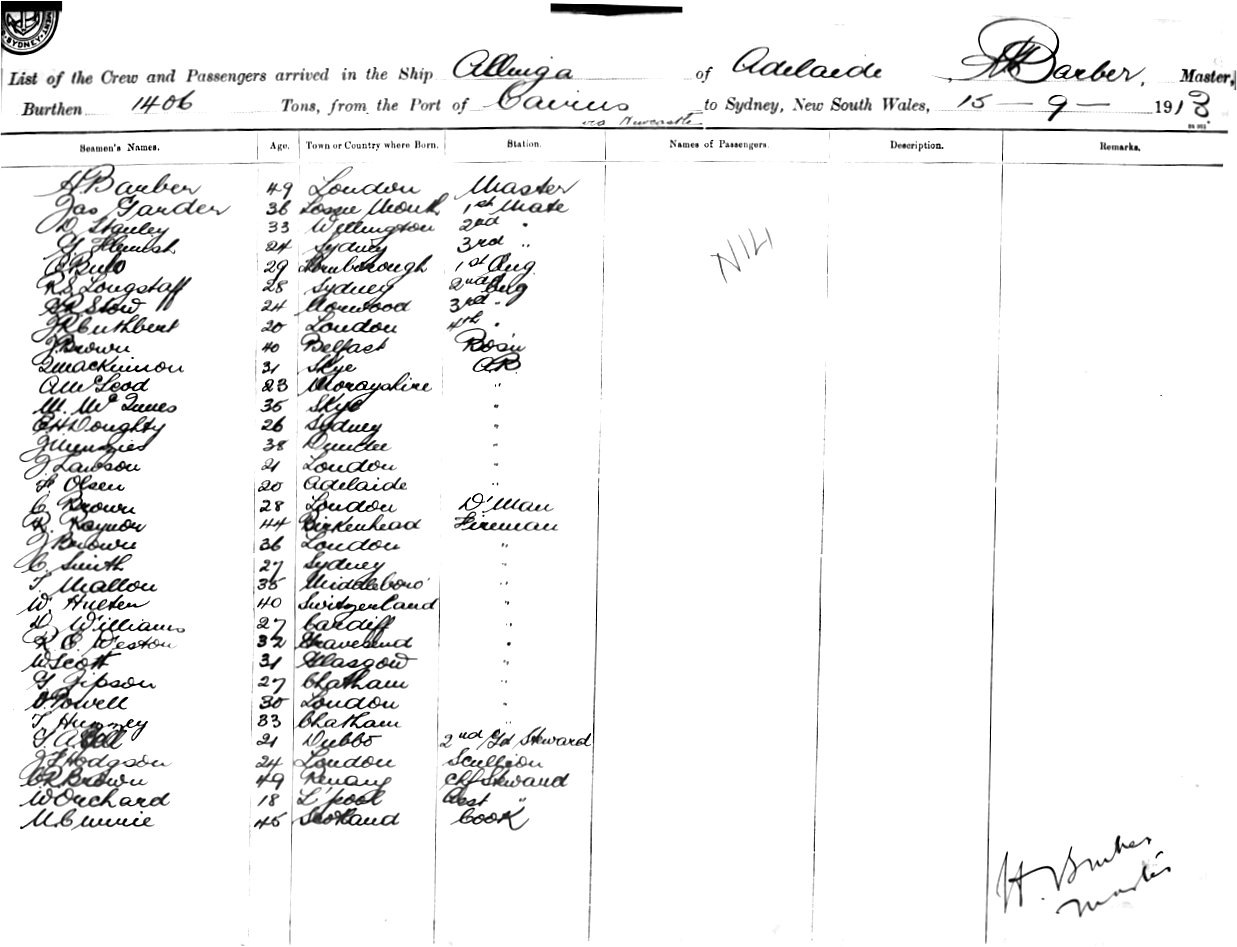 SYDNEY
List of the Crew and Passengers arrived in the Ship Allinga of Adelaide H Barber, Master,
Burthen 1406 Tons, from the Port of Cairns to Sydney, New South Wales, 15 - 9 - 1913
via Newcastle
Seamen's Names. Age. Town or Country where Born. Station. Names of Passengers. Description. Remarks.
H Barber 49 London Master
Jas Garder 36 Lossie Mouth 1st Mate
D. Stanley 33 Wellington 2nd "
G Flemish 24 Sydney 3rd "
NIL
29 1st Eng
R.S. Longstaff 28 Sydney 2nd Eng
Stow 24 Norwood 3rd "
J R Cuthbert 20 London 4th "
J Brown 40 Belfast Bos'n
MacKinnon 31 Skye A.B.
A McLeod 23 Morayshire "
M. McInnes 35 Skye "
E H Doughty 26 Sydney "
J Menzies 38 Dundee "
J Lawson 21 London "
F Olsen 20 Adelaide "
C Brown 28 London D'Man
R. Raynor 44 Birkenhead Fireman
J Brown 36 London "
C. Smith 27 Sydney "
T. Mallon 35 Middleboro' "
W. Hulten 40 Switzerland "
D Williams 27 Cardiff "
R E. Weston 32 Gravesend "
W Scott 31 Glasgow "
G Gipson 27 Chatham "
Powell 30 London "
T, Humney 33 Chatham "
21 Dubbo 2nd Gd Steward
J F Hodgson 24 London Scullion
C R Brown 49 Penang Chf Steward
W Orchard 18 L'pool Asst "
45 Scotland Cook
H. Barber
Master